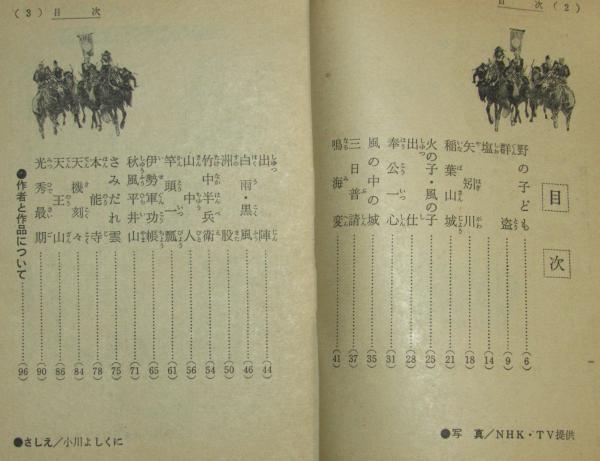 目　次 (2)
目次
野の子ども……(6)
群盗……(9)
塩……(14)
矢矧川……(18)
稲葉山城……(21)
火の子・風の子……(25)
出仕……(28)
奉公一心……(31)
風の中の城……(35)
三日普請……(37)
鳴海変……(41)
●写　真／NHK・TV提供
(3) 目　次
出陣……(44)
白雨・黒風……(46)
洲股……(50)
竹中半兵衛……(54)
山中人……(56)
竿頭一瓢……(61)
伊勢軍功帳……(65)
秋風平井山……(71)
さみだれ雲……(75)
本能寺……(78)
天機刻々……(84)
天王山……(86)
光秀最期……(90)
●作者と作品について……(96)
●さしえ／小川よしくに